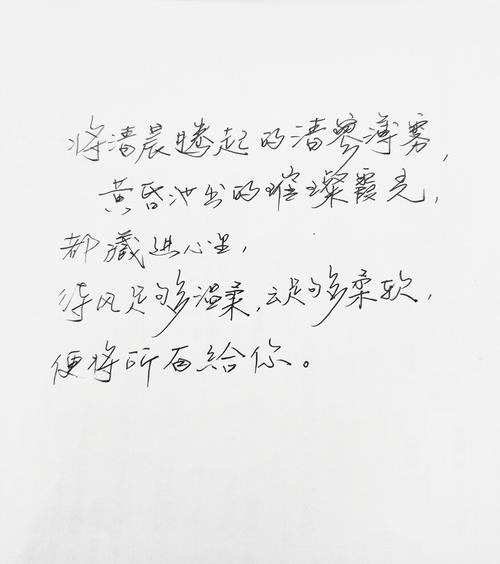 将清晨腾起的清寥薄雾,
黄昏沁出的璀璨霞光,
都藏进心里,
待风足够温柔,云足够柔软,
便将所有给你。